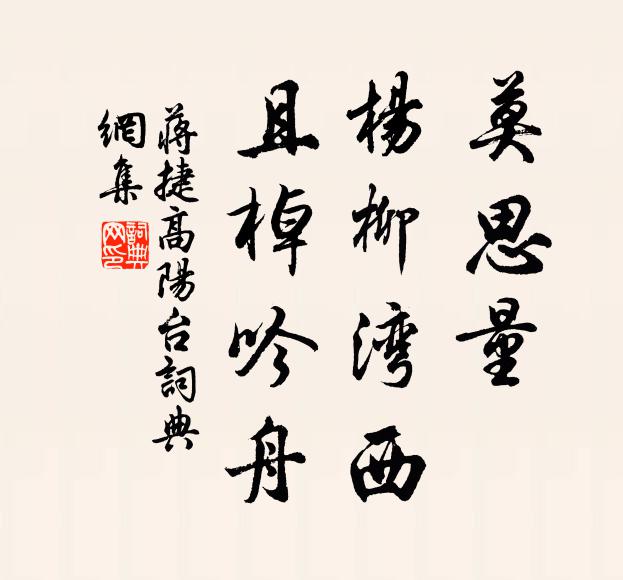 莫思量
楊柳湾西
且棹吟舟
蔣捷高陽台詞典
網集
詞典
网印